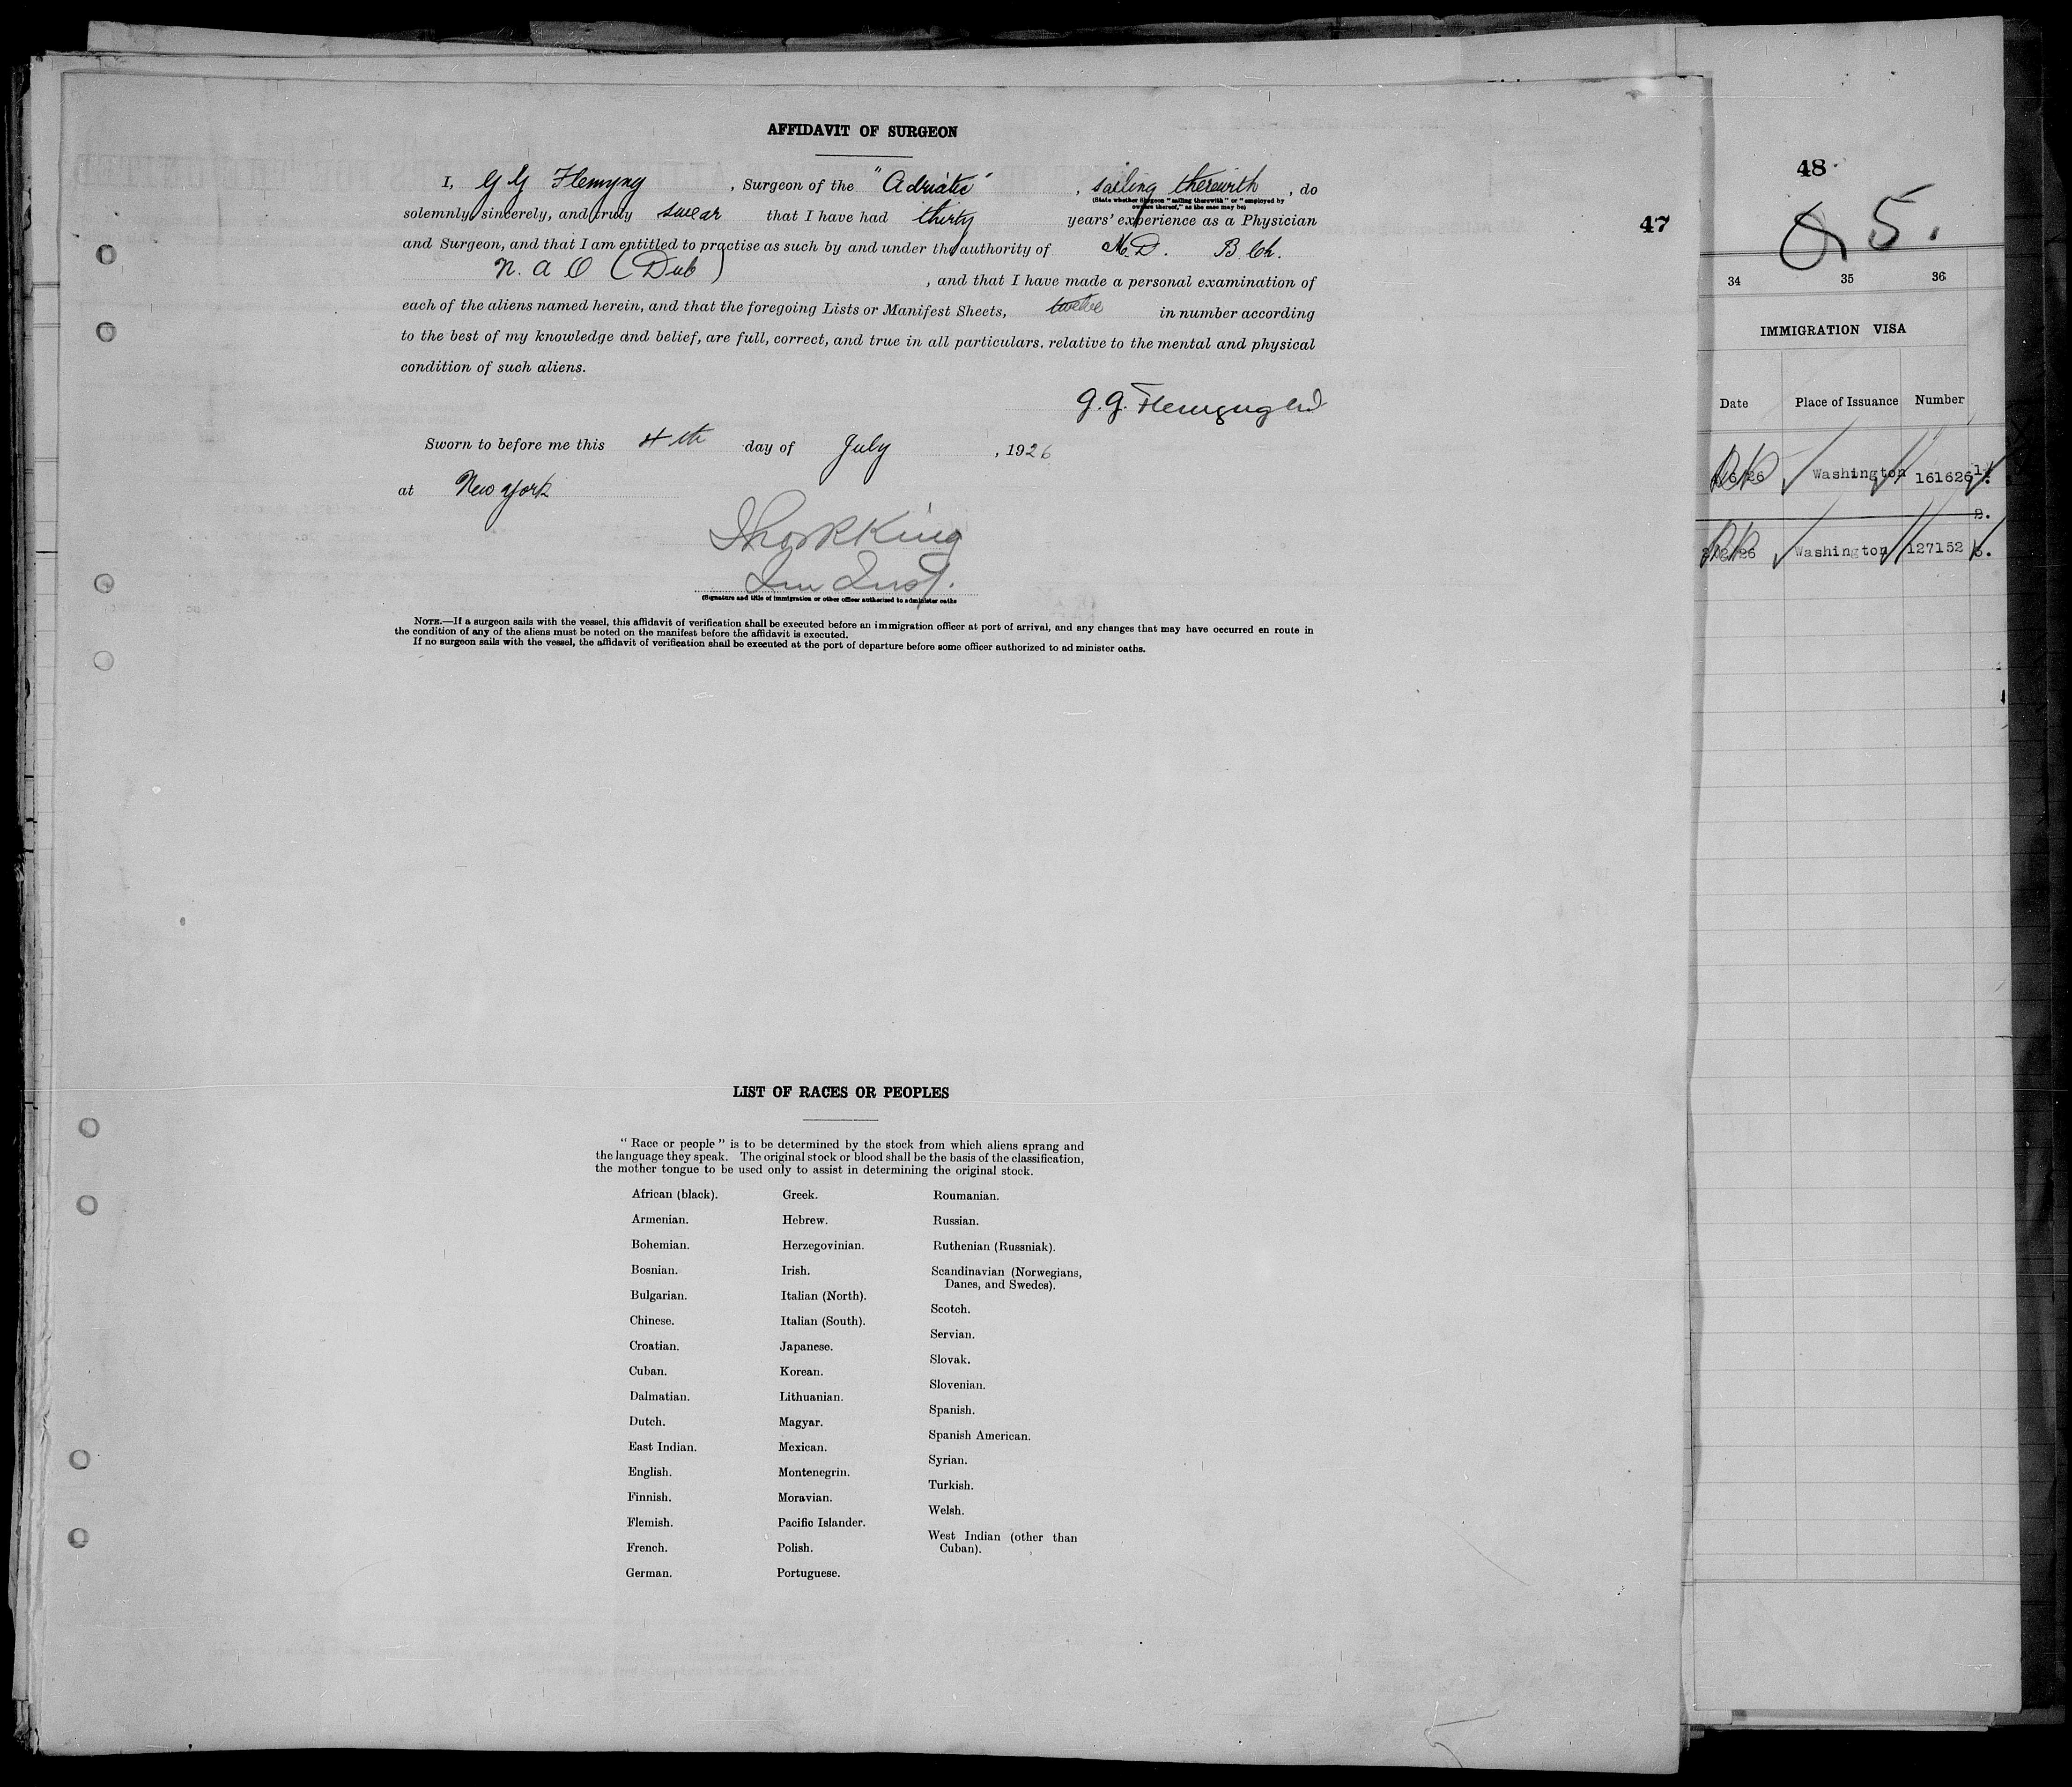 AFFIDAVIT OF SURGEON
I, G G Flemyng, Surgeon of the "Adriatic", sailing therewith, do
(State whether Surgeon "sailing therewith" or "employed by
owners thereof," as the case may be)
solemnly, sincerely, and truly swear that I have had thirty years' experience as a Physician
and Surgeon, and that I am entitled to practise as such by and under the authority of M.D. B Ch.
(Dub), and that I have made a personal examination of
each of the aliens named herein, and that the foregoing Lists or Manifest Sheets, twelve in number according
to the best of my knowledge and belief, are full, correct, and true in all particulars, relative to the mental and physical
condition of such aliens.
G. G. Flemyng
Sworn to before me this 4th day of July, 1926
at New York
King
Im Insp.
(Signature and title of immigration or other officer authorized to administer oaths
NOTE.—If a surgeon sails with the vessel, this affidavit of verification shall be executed before an immigration officer at port of arrival, and any changes that may have occurred en route in
the condition of any of the aliens must be noted on the manifest before the affidavit is executed.
If no surgeon sails with the vessel, the affidavit of verification shall be executed at the port of departure before some officer authorized to ad minister oaths.
LIST OF RACES OR PEOPLES
"Race or people" is to be determined by the stock from which aliens sprang and
the language they speak. The original stock or blood shall be the basis of the classification,
the mother tongue to be used only to assist in determining the original stock.
African (black).
Armenian.
Bohemian.
Bosnian.
Bulgarian.
Chinese.
Croatian.
Cuban.
Dalmatian.
Dutch.
East Indian.
English.
Finnish.
Flemish.
French.
German.
Greek.
Hebrew.
Herzegovinian.
Irish.
Italian (North).
Italian (South).
Japanese.
Korean.
Lithuanian.
Magyar.
Mexican.
Montenegrin.
Moravian.
Pacific Islander.
Polish.
Portuguese.
Roumanian.
Russian.
Ruthenian (Russniak).
Scandinavian (Norwegians,
Danes, and Swedes).
Scotch.
Servian.
Slovak.
Slovenian.
Spanish.
Spanish American.
Syrian.
Turkish.
Welsh.
West Indian (other than
Cuban).
5
47
48
5.
34 35 36
IMMIGRATION VISA
Date Place of Issuance Number
Washington 161626 1.
2.
Washington 127152 3.